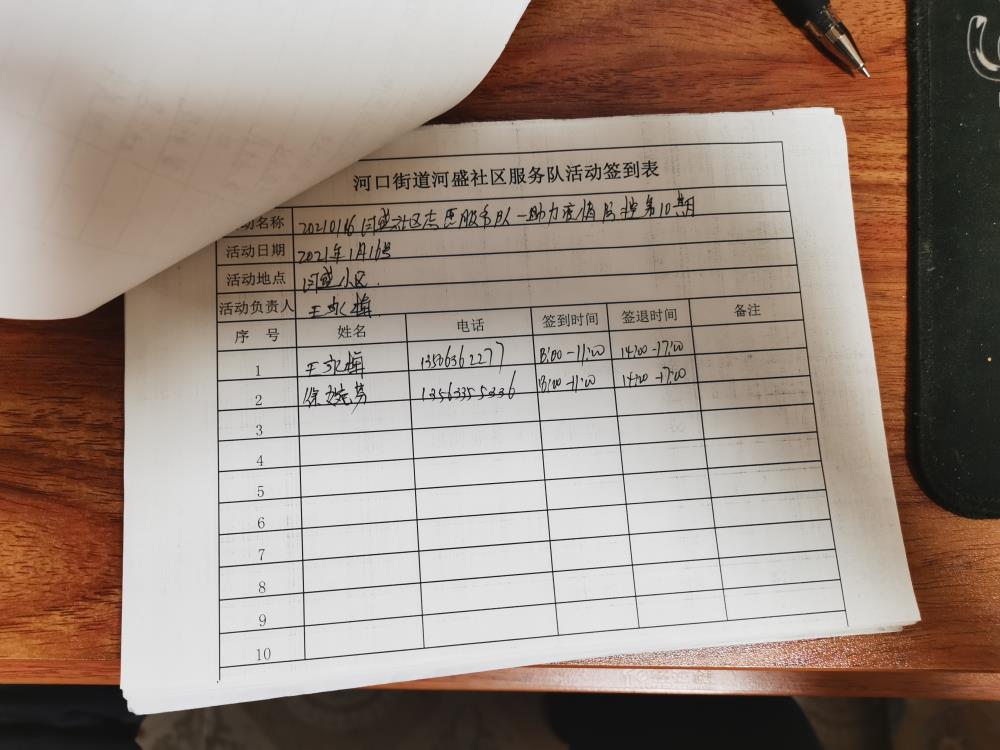 河口街道河盛社区服务队活动签到表
动名称 20210116河盛社区志愿服务队—助力疫情防控第10期
活动日期 2021年1月16号
活动地点 河盛小区
活动负责人 王永梅
序号 姓名 电话 签到时间 签退时间 备注
1 王永梅 13506362277 8:00-11:00 14:00-17:00
2 徐 芳 13563355336 8:00-11:00 14:00-17:00
3
4
5
6
7
8
9
10